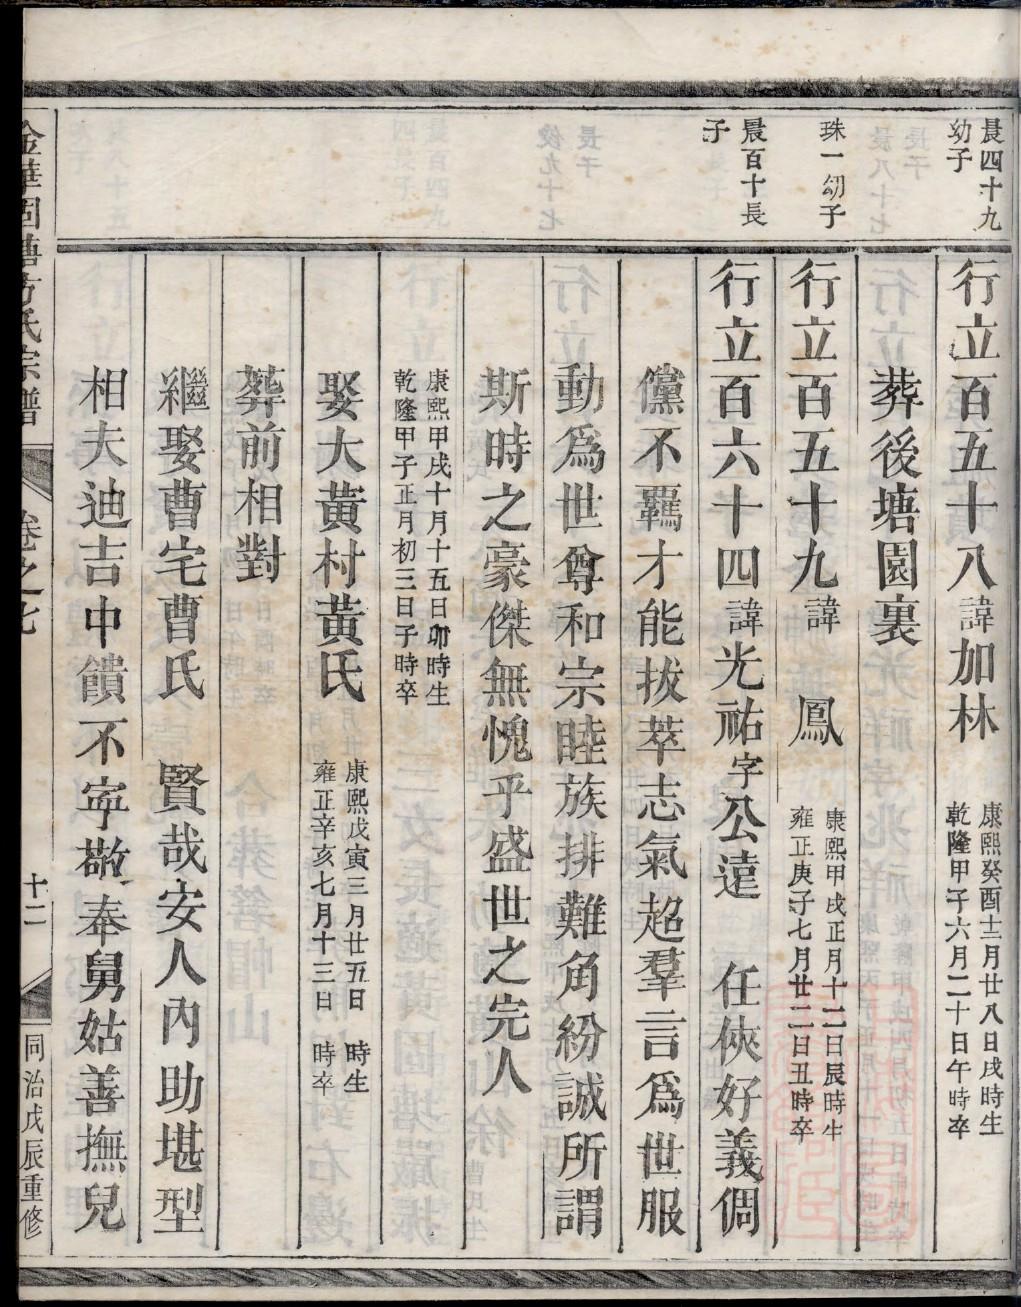 晨四十九
幼子
行立百五十八諱加林
康熙癸酉十二月廿八日戌時生
乾隆甲子六月二十日午時卒
葬後塘園裏
珠一幼子
行立百五十九諱 鳳
康熙甲戌正月十二日辰時生
雍正庚子七月廿二日丑時卒
晨百十長
子
行立百六十四諱光祐字公遠 任俠好義倜
儻不羈才能拔萃志氣超羣言爲世服
動爲世尊和宗睦族排難角紛誠所謂
斯時之豪傑無愧乎盛世之完人
康熙甲戌十月十五日卯時生
乾隆甲子正月初三日子時卒
娶大黃村黃氏
康熙戊寅三月廿五日 時生
雍正辛亥七月十三日 時卒
葬前相對
繼娶曹宅曹氏 賢哉安人內助堪型
相夫迪吉中饋不寧敬奉舅姑善撫兒
金華固塘方氏宗譜
卷之七
十二
同治戊辰重修